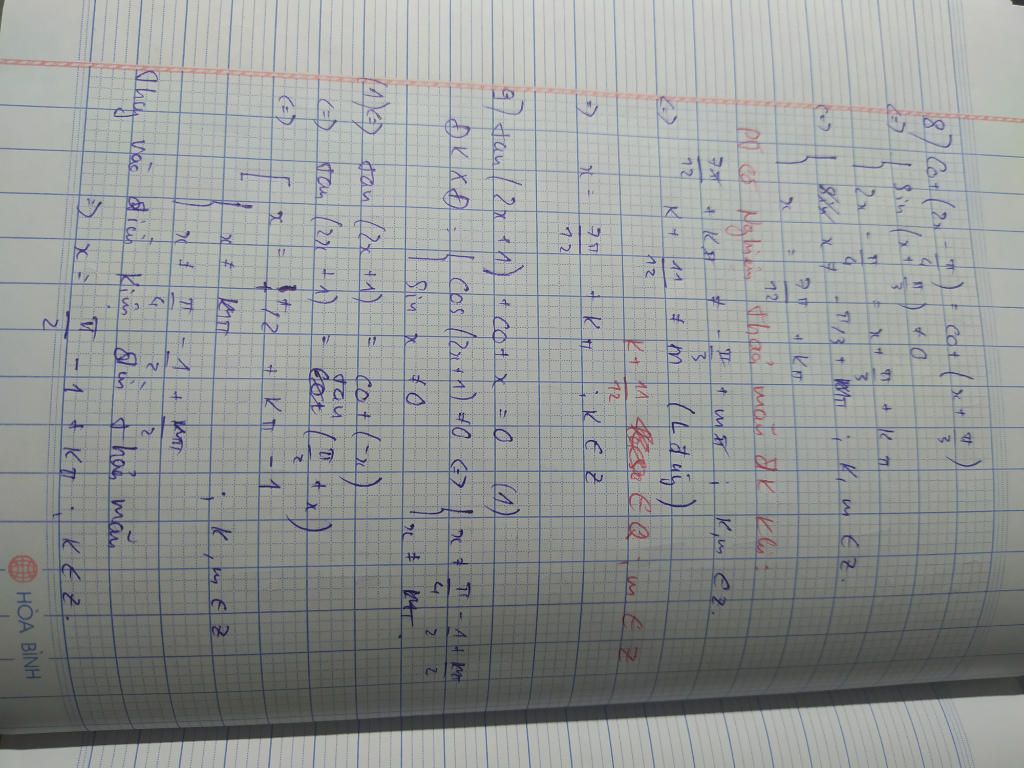 8) Cot (2x - π/4) = cot (x + π/3)
<=> { Sin (x + π/3) ≠ 0
{ 2x - π/4 = x + π/3 + kπ
<=> { x ≠ -π/3 + mπ ; k, m ∈ Z.
{ x = 7π/12 + kπ
Pt có nghiệm thoả mãn ĐK khi:
7π/12 + kπ ≠ -π/3 + mπ ; k, m ∈ Z.
<=> k + 11/12 ≠ m (Lđúng)
k + 11/12 ∈ Q ; m ∈ Z
=> x = 7π/12 + kπ ; k ∈ Z
9) tan (2x + 1) + cot x = 0 (1)
ĐKXĐ: { cos (2x + 1) ≠ 0 <=> { x ≠ π/4 - 1/2 + mπ/2
{ Sin x ≠ 0 { x ≠ mπ.
(1) <=> tan (2x + 1) = cot (-x)
<=> tan (2x + 1) = tan (π/2 + x)
<=> [ x = π/2 + kπ - 1
{ x ≠ kmπ ; k, m ∈ Z
{ x ≠ π/4 - 1/2 + kmπ/2
Thay vào điều kiện đều thoả mãn
=> x = π/2 - 1 + kπ ; k ∈ Z.
HÒA BÌNH